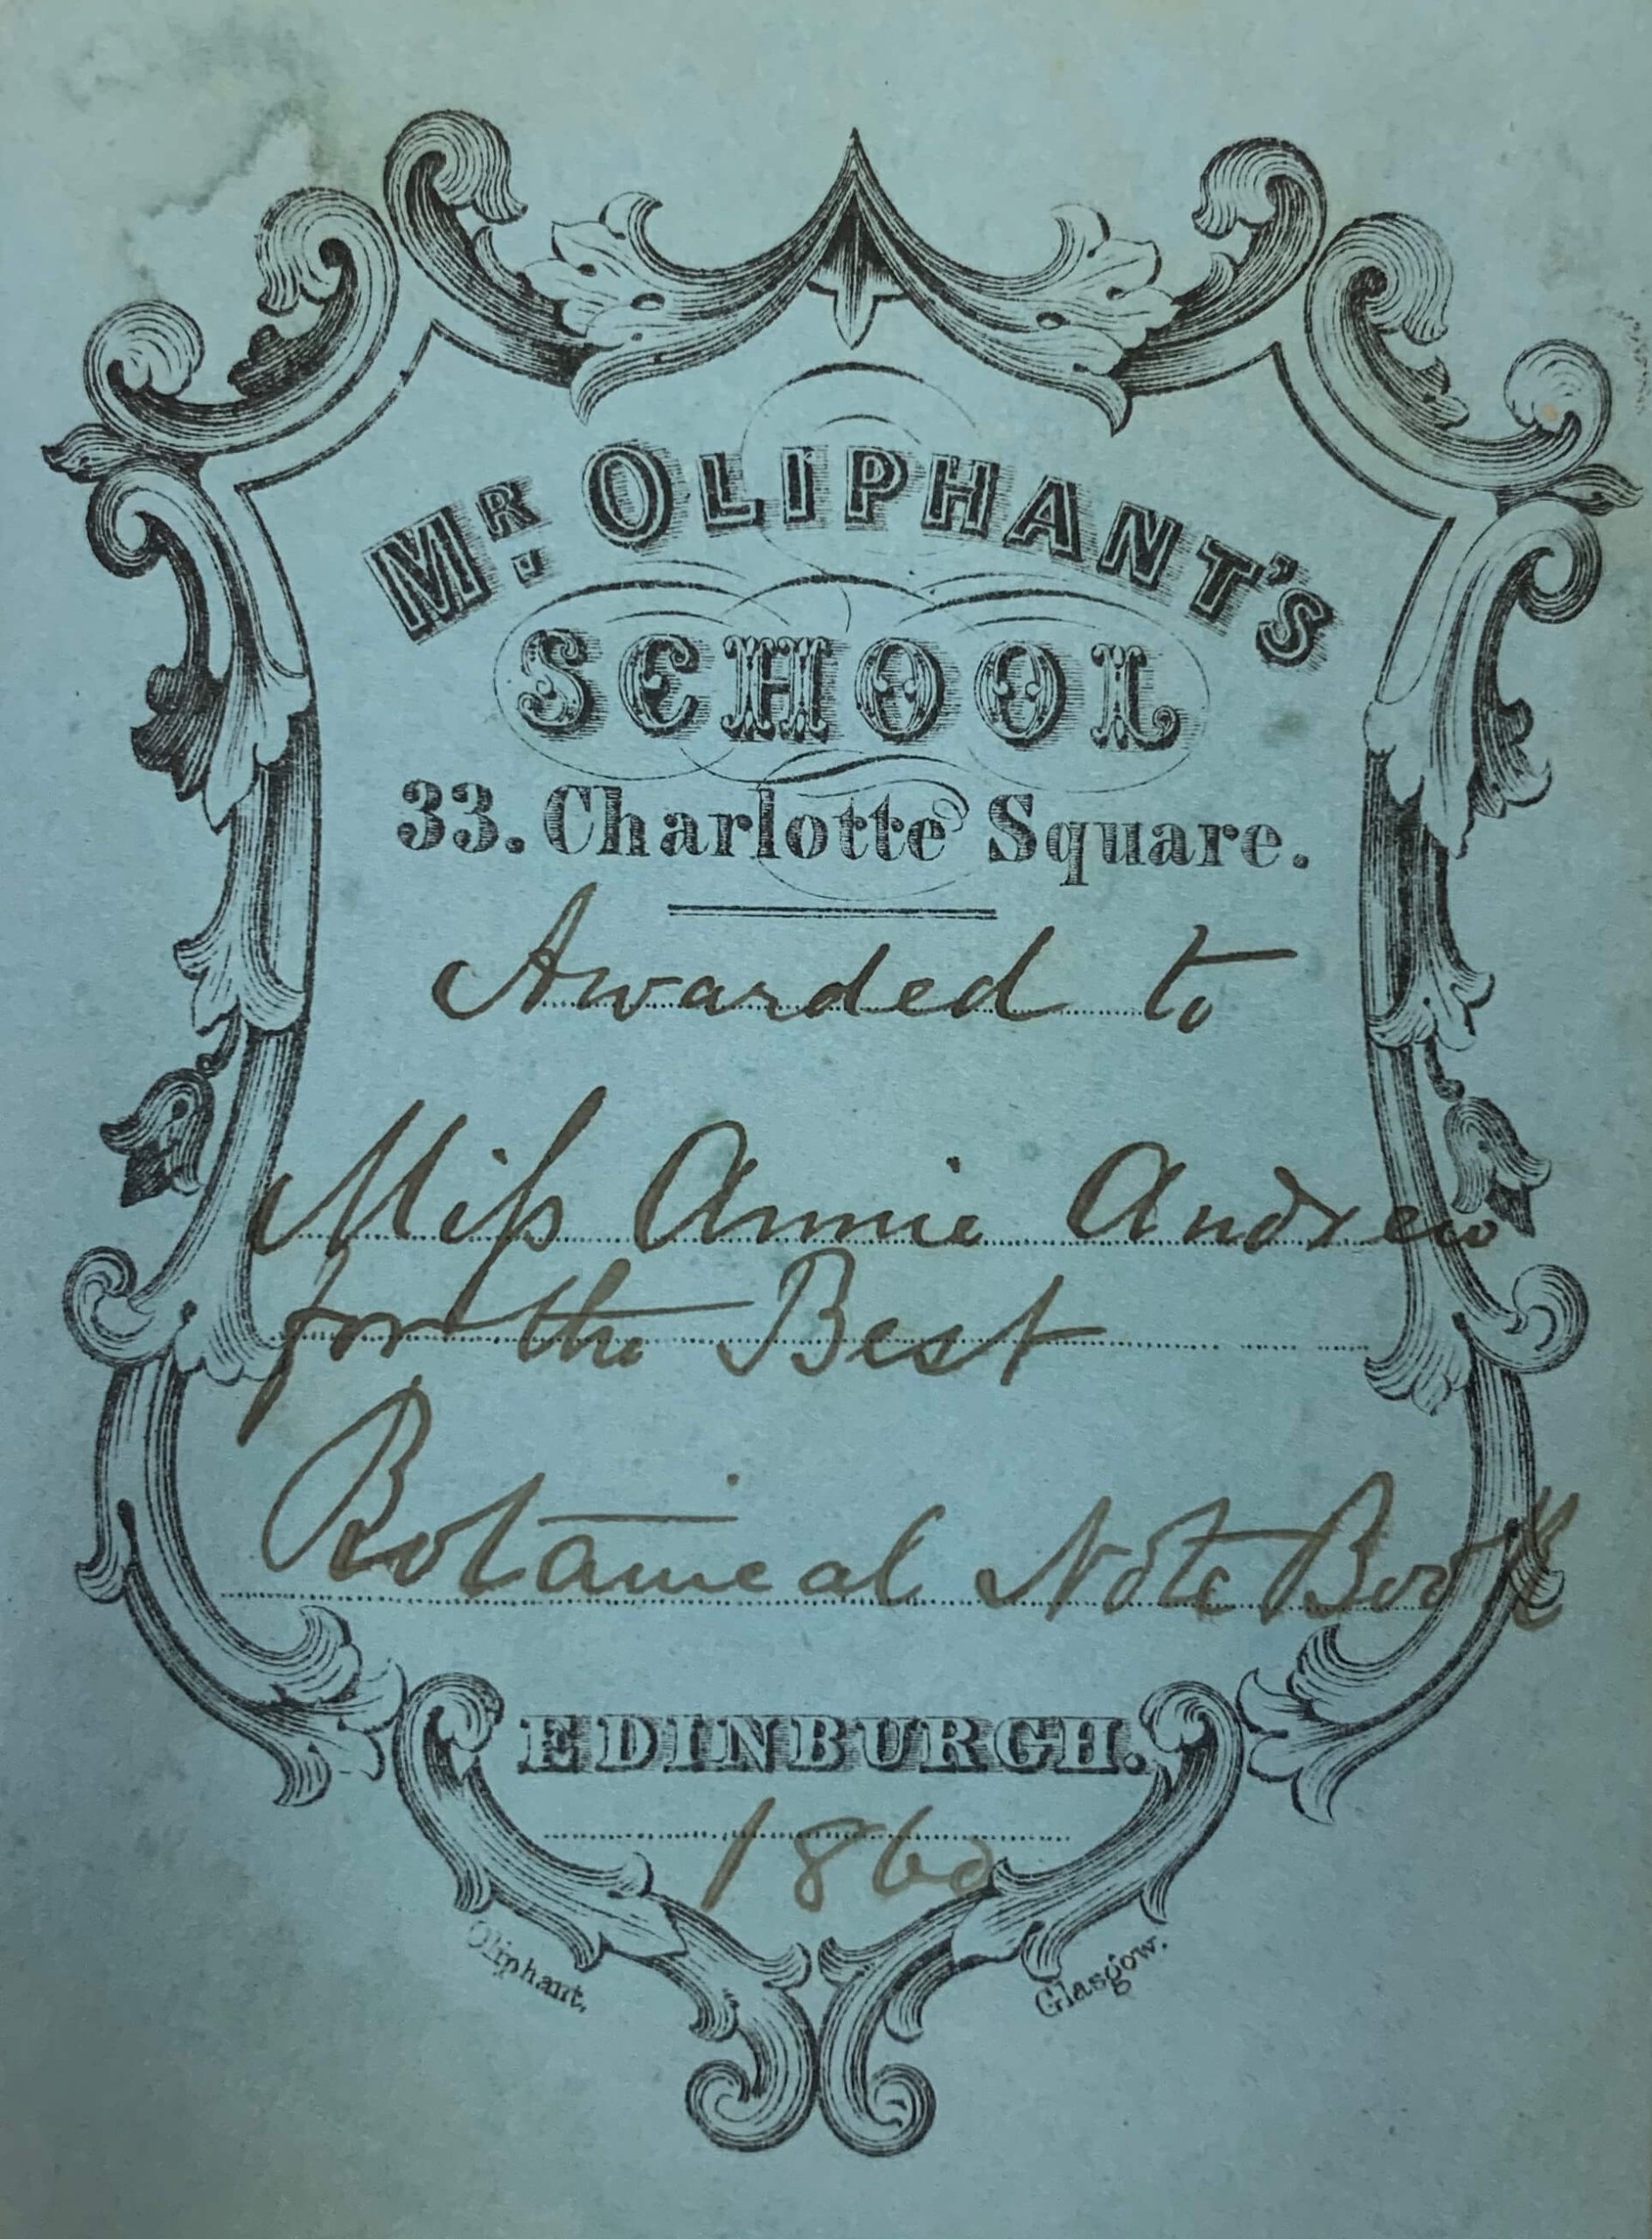 MR. OLIPHANT'S
SCHOOL
33. Charlotte Square.
Awarded to
Miſs Annie Andrew
for the Best
Botanical Note Book
EDINBURGH.
1860
Oliphant. Glasgow.